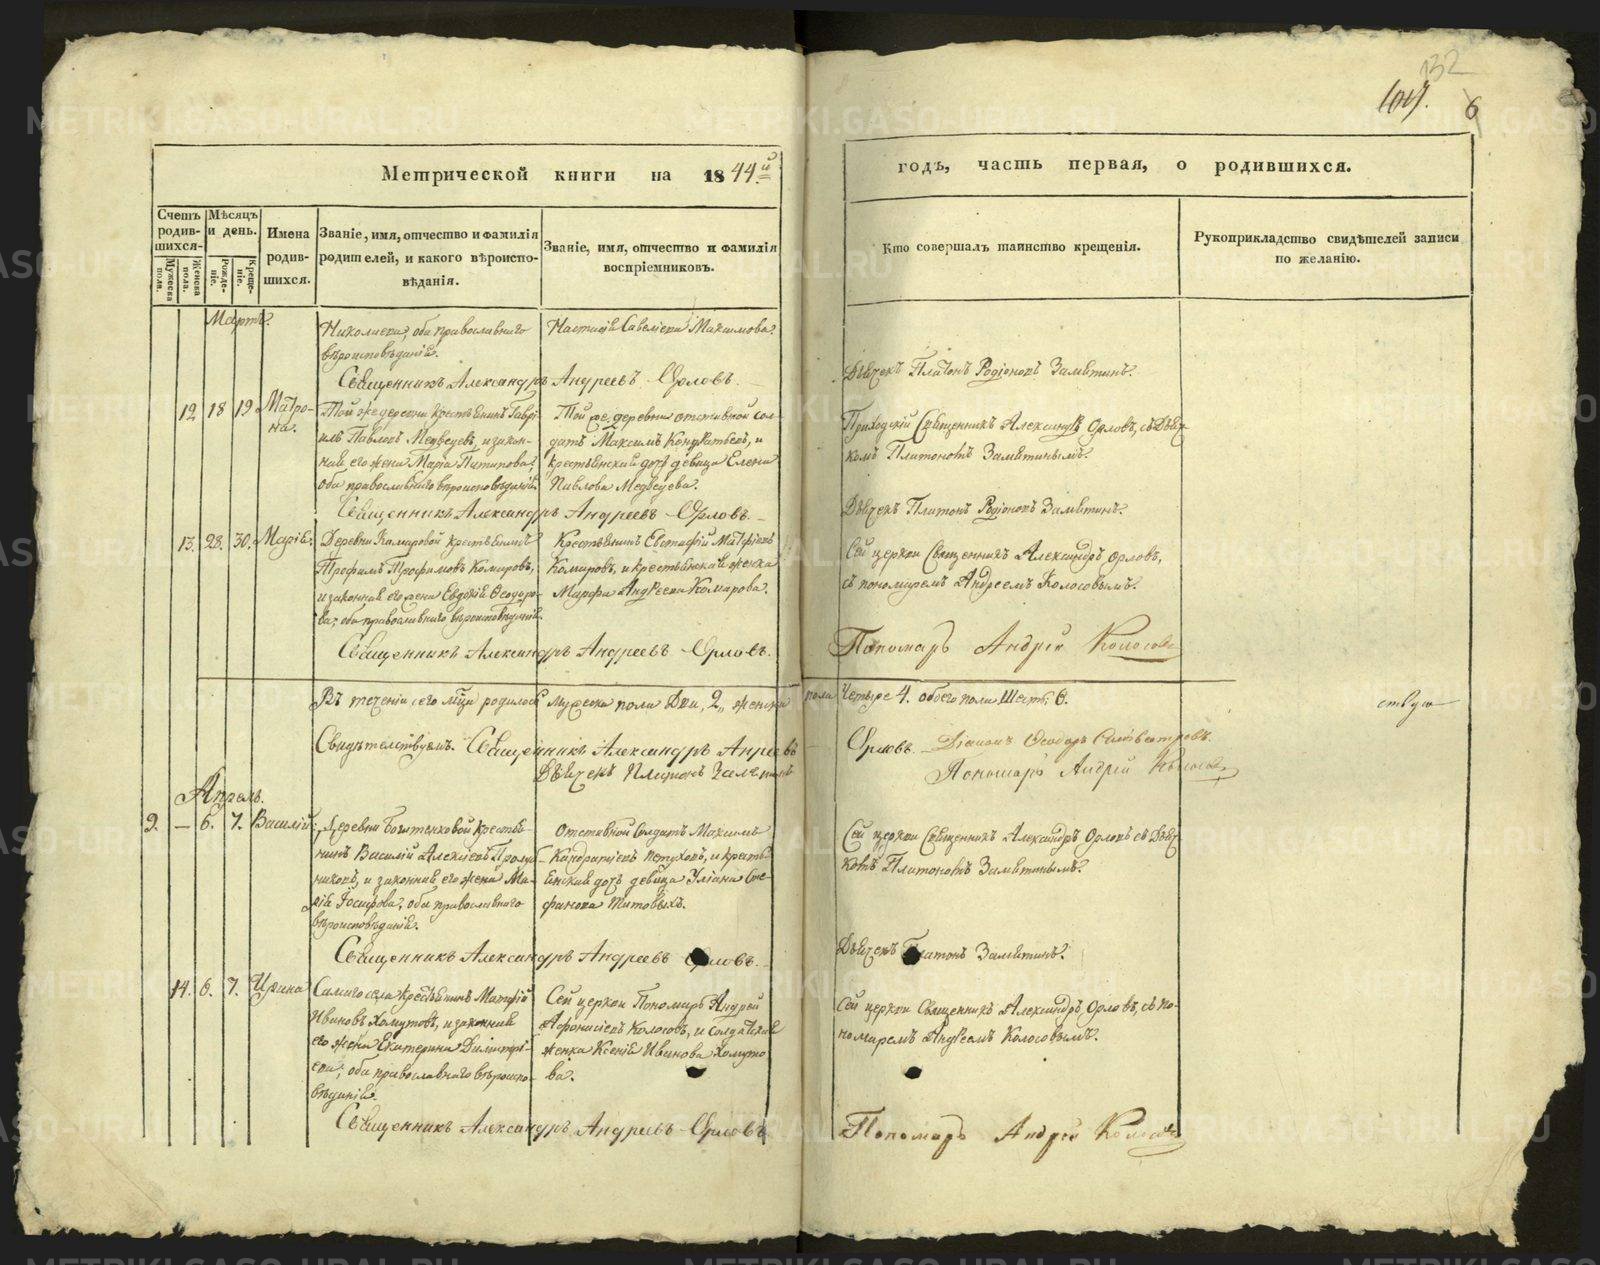 132
107. 6
Метрической книги на 1844й
годъ, часть первая, о родившихся.
Счетъ родив-шихся.
Мужеска пола.
Женска пола.
Мѣсяцъ и день.
Рожде-ніе.
Креще-ніе.
Имена родив-шихся.
Званіе, имя, отчество и фамилія родителей, и какого вѣроиспо-вѣданія.
Званіе, имя, отчество и фамилія воспріемниковъ.
Кто совершалъ таинство крещенія.
Рукоприкладство свидѣтелей записи по желанію.
Мартъ.
Николаева, оба православнаго
вѣроисповѣданія.
Настасія Савельева Максимова.
Священникъ Александръ Андреевъ Орловъ.
Дьячекъ Платонъ Родіоновъ Замятинъ.
12 18 19 Матро-
на.
Той же деревни крестьянинъ Гаври-
илъ Павловъ Медведевъ, и закон-
ная его жена Марія
оба православнаго вѣроисповѣданія.
Той же деревни отставной сол-
датъ Максимъ Кондратьевъ, и
крестьянская дочь девица Елена
Павлова Медведева.
Приходскій Священникъ Александръ Орловъ, съ Дьяч-
комъ Платономъ Замятинымъ.
Священникъ Александръ Андреевъ Орловъ.
Дьячекъ Платонъ Родіоновъ Замятинъ.
13. 28. 30. Марія.
Деревни Комаровой крестьянинъ
Трофимъ Трофимовъ Комаровъ,
и законная его жена Евдокія Ѳеодоро-
ва, оба православнаго вѣроисповѣданія.
Крестьянинъ Евстафій Матфіевъ
Комаровъ, и крестьянская женка
Марфа Андреева Комарова.
Сей церкви Священникъ Александръ Орловъ,
съ пономаремъ Андреемъ Колосовымъ.
Священникъ Александръ Андреевъ Орловъ.
Пономарь Андрей Колосовъ
Въ теченіи сего мѣсяца родилось мужеска пола Два, 2, женска пола Четыре 4. обоего пола Шесть, 6.
Свидѣтелствуемъ. Священникъ Александръ Андреевъ Орловъ Діаконъ Ѳеодоръ Силвестровъ.
Дьячекъ Платонъ Замятинъ Пономарь Андрей Колосовъ
ствую
Апрель.
9. — 6. 7. Василій.
Деревни крестья-
нинъ Василій Алексіевъ
никовъ, и законная его жена Ма-
рія Іосифова, оба православнаго
вѣроисповѣданія.
Отставной Солдатъ Максимъ
Кандратьевъ Петуховъ, и кресть-
янская дочь девица Уліана Сте-
фанова Титовыхъ.
Сей церкви Священникъ Александръ Орловъ съ Дьяч-
комъ Платономъ Замятинымъ.
Священникъ Александръ Андреевъ Орловъ.
Дьячекъ Платонъ Замятинъ.
14. 6. 7. Ирина
Самаго села крестьянинъ Матфій
Ивановъ Хомутовъ, и законная
его жена Екатерина Димитрі-
ева, оба православнаго вѣроиспо-
вѣданія.
Сей церкви Пономарь Андрей
Афонасіевъ Колосовъ, и солдатская
женка Ксенія Иванова Хомуто-
ва.
Сей церкви Священникъ Александръ Орловъ, съ по-
номаремъ Андреемъ Колосовымъ.
Священникъ Александръ Андреевъ Орловъ
Пономарь Андрей Колосовъ
METRIKI.GASO-URAL.RU